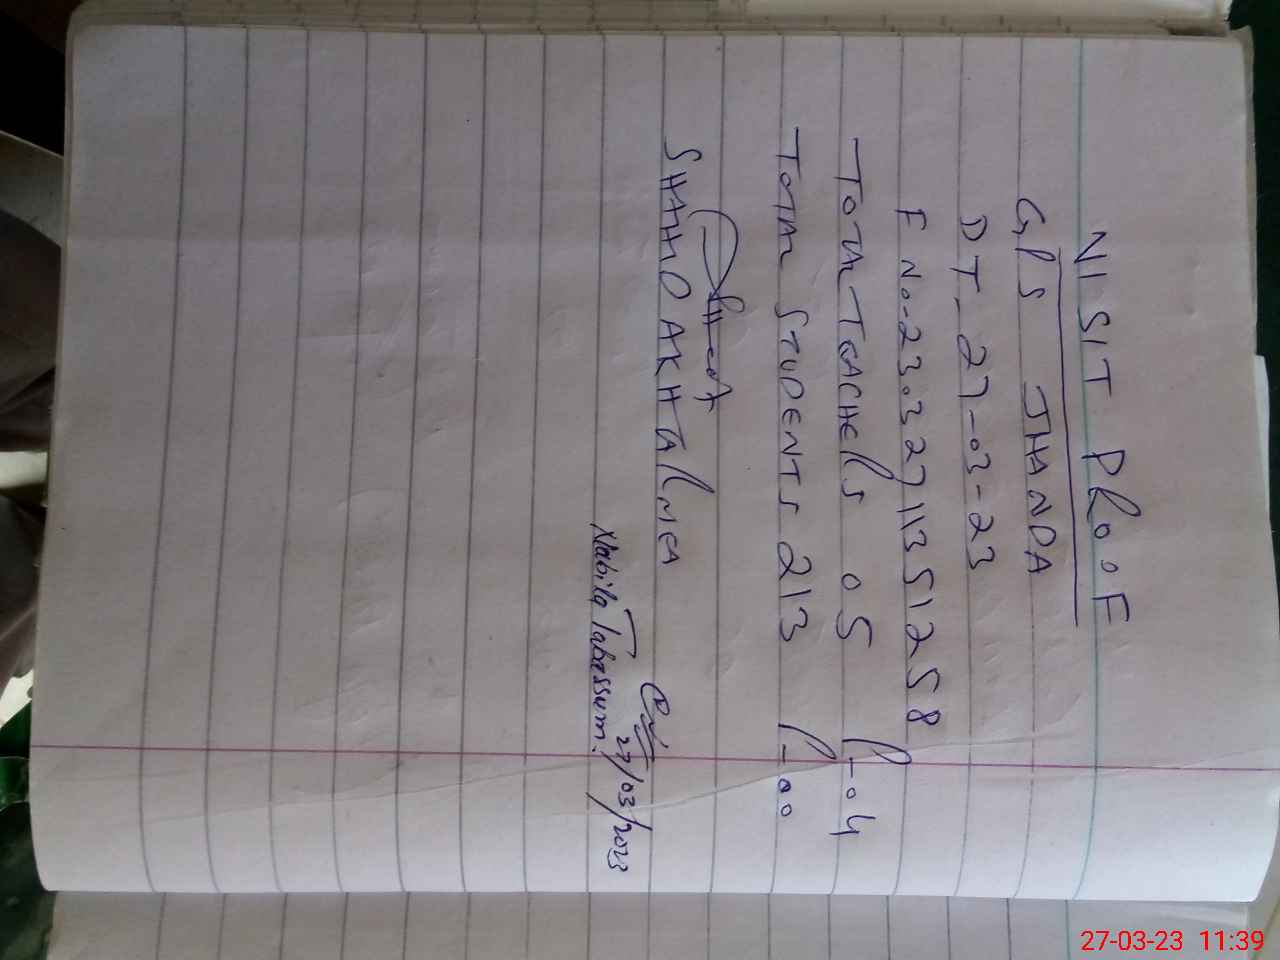 NISIT PROOF
GPS JHANDA
DT-27-03-23
F No-23.3271135 1258
TOTAL TEACHERS 05 P-04
TOTAL STUDENTS 213 P-00
SHAHIDA KHTAR
Nabila Tabassum.
27/03/2023
27-03-23 11:39